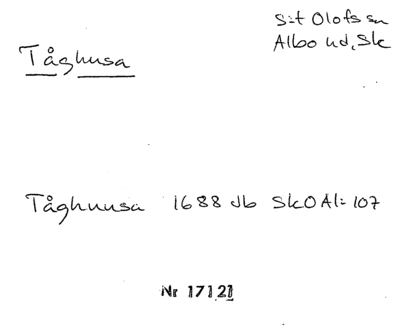 S:t Olofs sn
Albo hd, Sk
Tåghusa
Tåghuusa 1688 Jb SkO Al: 107
Nr 17121